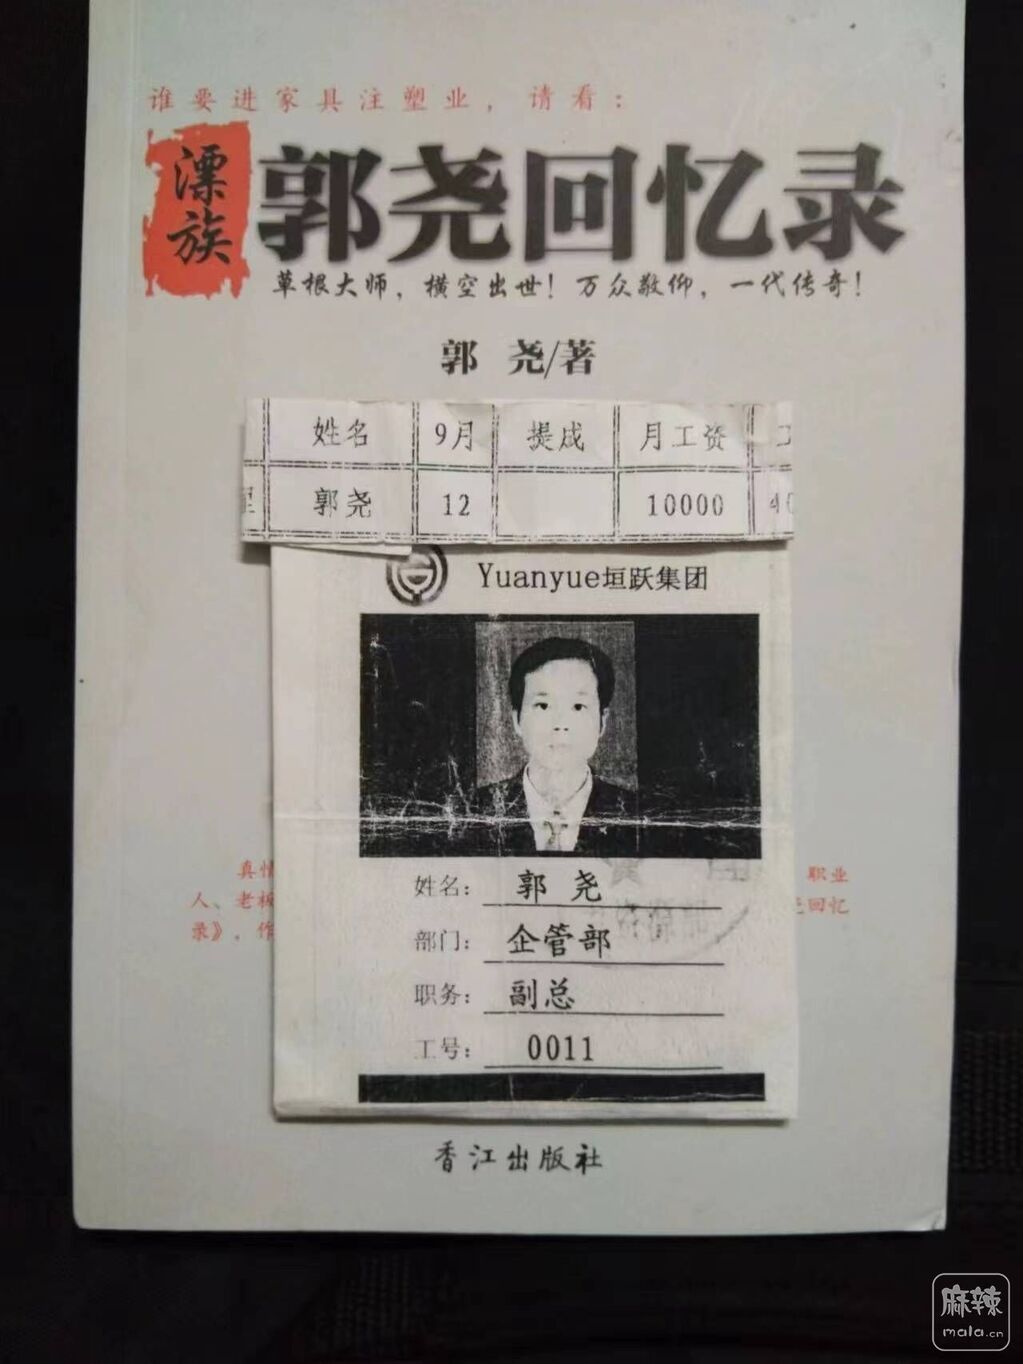 谁要进家具注塑业，请看：
漂族
郭尧回忆录
草根大师，横空出世！万众敬仰，一代传奇！
郭 尧/著
姓名 9月 提成 月工资
郭尧 12 10000 40
Yuanyue垣跃集团
姓名： 郭 尧
部门： 企管部
职务： 副总
工号： 0011
真情 职业
人、老板 回忆
录》，作
香江出版社
麻辣
mala.cn